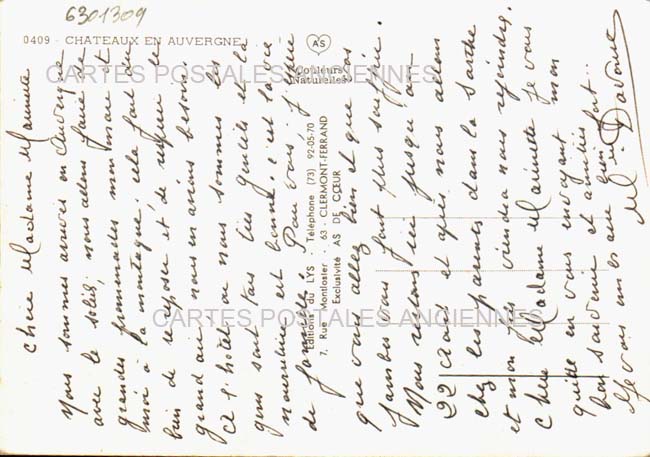 6301309
0409 - CHATEAUX EN AUVERGNE
AS
Couleurs
Naturelles
CARTES POSTALES ANCIENNES
CARTES POSTALES ANCIENNES
Editions du LYS - Téléphone (73) 92-05-70
7, Rue Montlosier - 63 - CLERMONT-FERRAND
Exclusivité AS DE CŒUR
Chère Madame Mainette
Nous sommes arrivés en Auvergne
avec le soleil; nous allons faire de
grandes promenades mon mari et
moi à la montagne. cela fait du
bien de se reposer et de respirer le
grand air nous en avions besoin.
Ce l'hôtel où nous sommes les
gens sont tous très gentils et la
nourriture est bonne. c'est la cuisine
de famille. Pour vous j'
que vous allez bien et que vos
jambes vous font plus souffrir.
Nous restons ici jusqu'au
22 Aout et après nous allons
chez les parents dans la Sarthe
et mon fils viendra nous rejoindre.
Chère Madame Mainette je vous
quitte en vous envoyant mon
bon souvenir et amitiés fort.
Je vous embrasse bien fort
Davoust